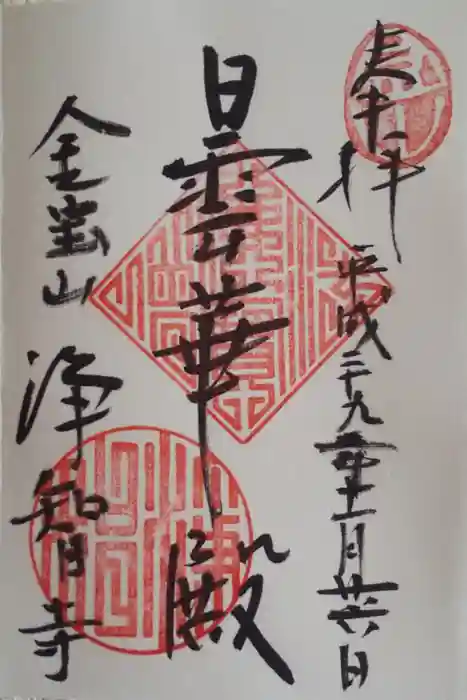 奉拝
平成二十九年十一月廿六日
曇華殿
金宝山
浄智寺